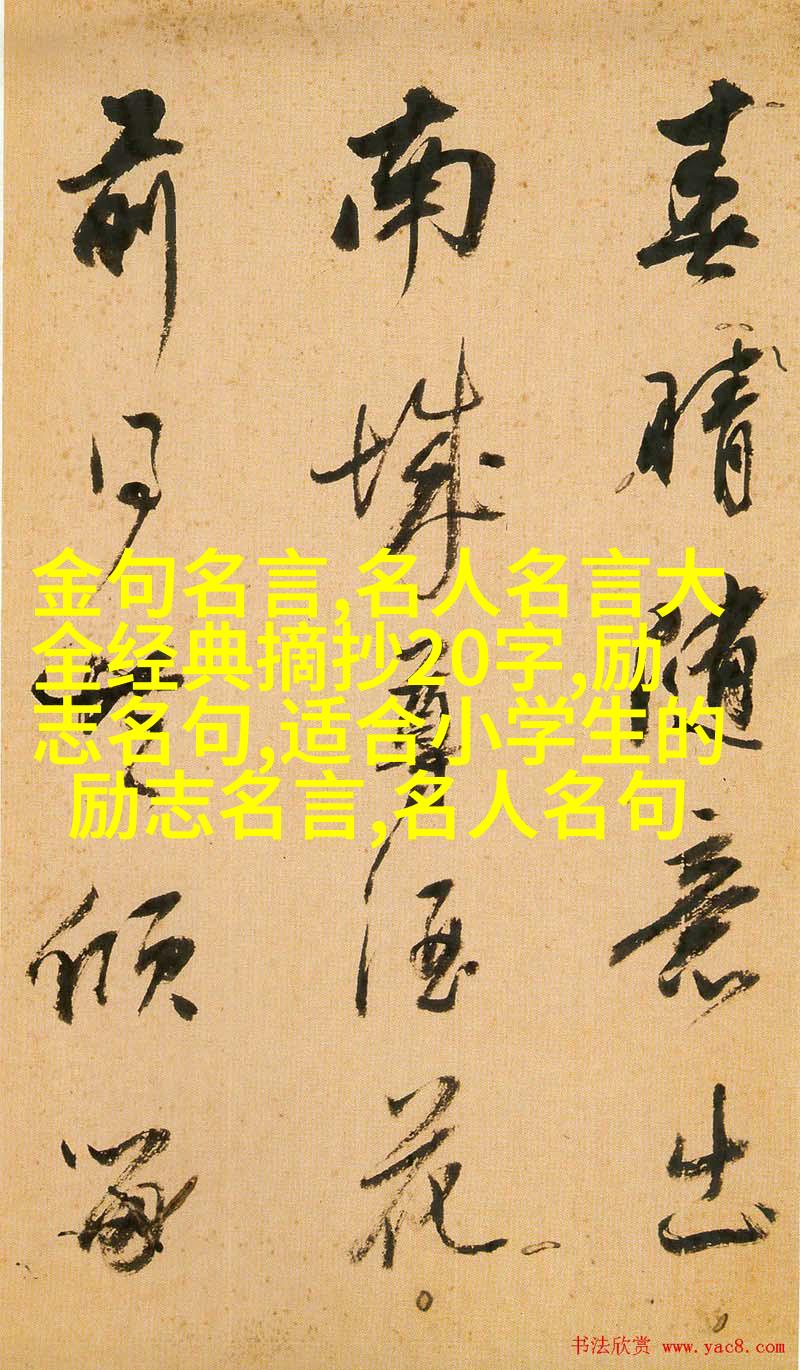 春晴随意出
南城尊酒花
前倾
金句名言,名人名言大
全经典摘抄20字,励
志名句,适合小学生的
励志名言,名人名句
书法欣赏 www.yac8.com